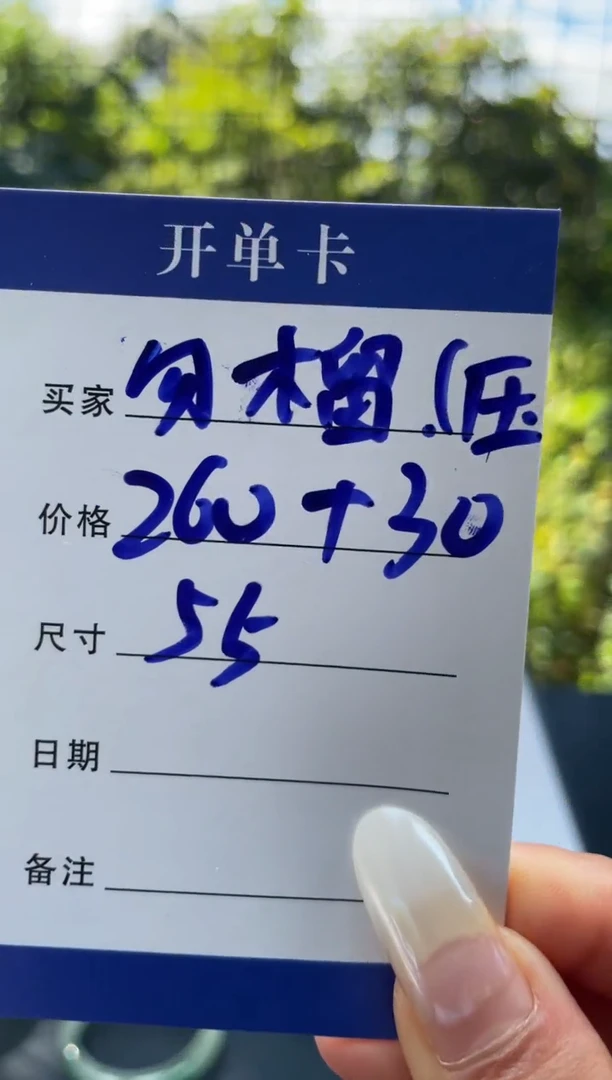 开单卡
买家 榴.(压
价格 260+30
尺寸 55
日期
备注